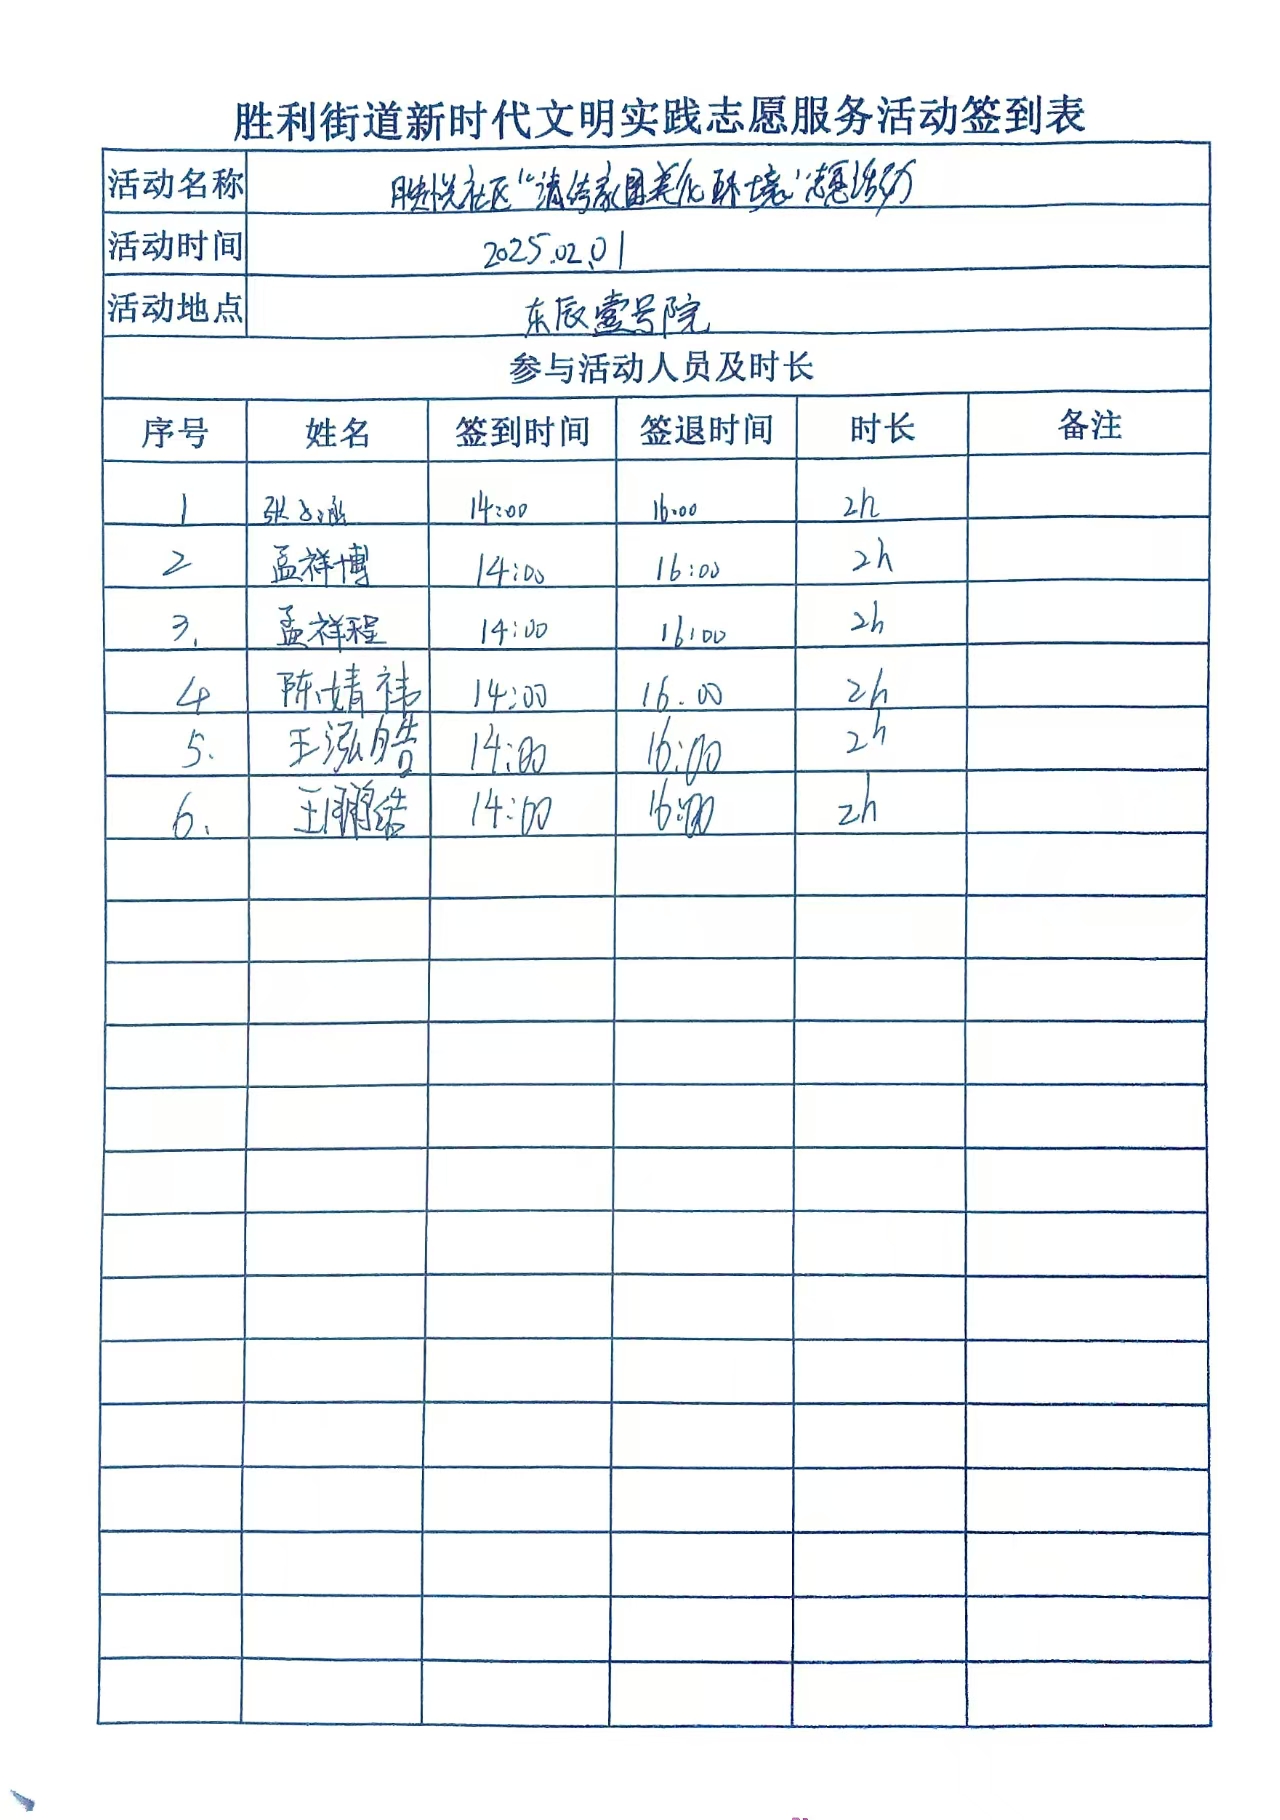 胜利街道新时代文明实践志愿服务活动签到表
活动名称 胜悦社区“清洁家园美化环境”志愿活动
活动时间 2025.02.01
活动地点 东辰壹号院
参与活动人员及时长
序号 姓名 签到时间 签退时间 时长 备注
1 张 涵 14:00 16:00 2h
2 孟祥博 14:00 16:00 2h
3. 孟祥程 14:00 16:00 2h
4 陈婧祎 14:00 16.00 2h
5. 王泓皓 14:00 16:00 2h
6. 王 14:00 16:00 2h